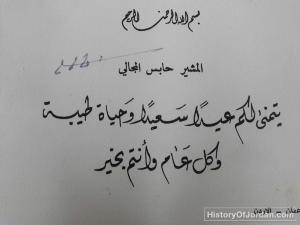 بسم الله الرحمن الرحيم
المشير حابس المجالي
يتمنى لكم عيدًا سَعيدًا وَحياة طيبة
وكل عَام وأنتم بخير
عمان - الاردن
HistoryOfJordan.com